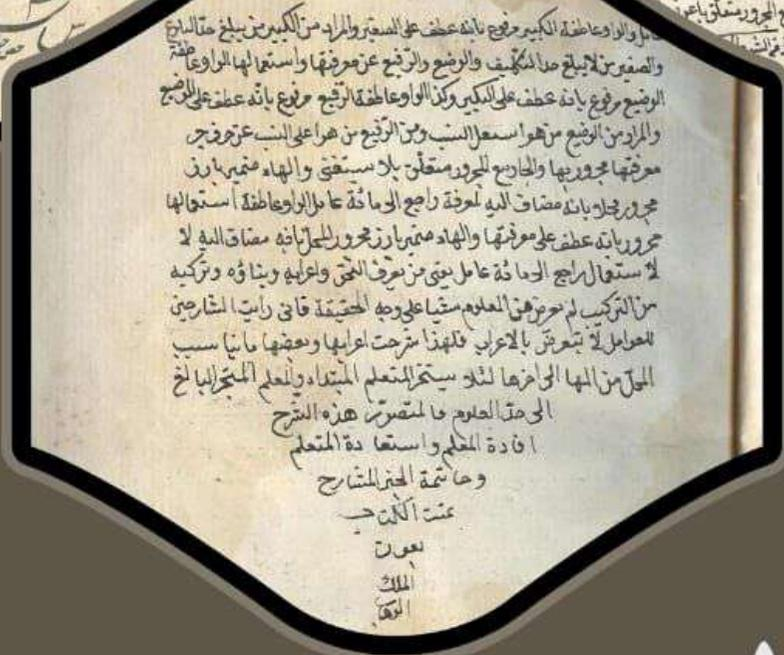 عامل والواو عاطفة الكبير مرفوع بانه عطف على الصغير والمراد من الكبير من يبلغ حد البلوغ
والصغير من لا يبلغ حد التكليف والوضيع والرفيع عن معرفتها واستعمالها الواو عاطفة
الوضيع مرفوع بانه عطف على الكبير وكذا الواو عاطفة الرفيع مرفوع بانه عطف على الوضيع
والمراد من الوضيع من هو اسفل النسب ومن الرفيع من هو اعلى النسب عن حرف جر
معرفتها مجرور بها والجار مع المجرور متعلق بلا يستغنى والهاء ضمير بارز
مجرور محلا بانه مضاف اليه لمعرفة راجع الى مائة عامل الواو عاطفة استعمالها
مجرور بانه عطف على معرفتها والهاء ضمير بارز مجرور المحل بانه مضاف اليه لا
لاستعمال راجع الى مائة عامل يعنى من تعرف النحو واعرابه وبناؤه وتركيبه
من التركيب لم تعرض من العلوم شيئا على وجه الحقيقة فانى رايت الشارحين
للعوامل لا تتعرض بالاعراب فلهذا شرحت اعرابها وبعضها
المحل من الى اخرها لئلا المتعلم المبتداء والمعلم المتبحر البالغ
الى حد العلوم هذه الشرح
افادة المعلم واستفادة المتعلم
وخاتمة الخير للشارح
تمت الكتاب
بعون
الملك
الوهاب